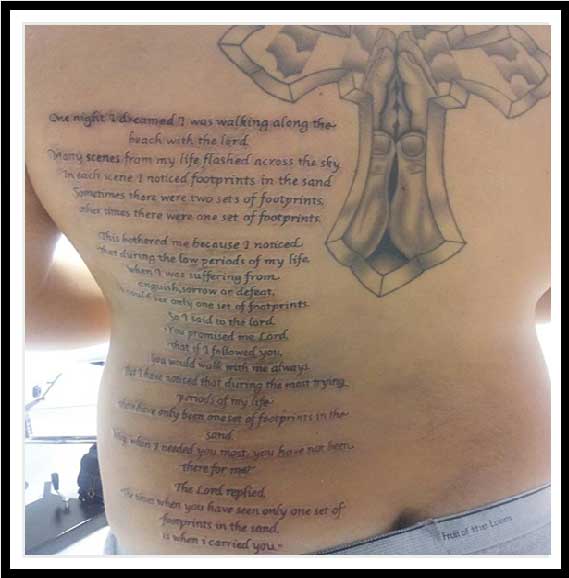 One night I dreamed I was walking along the
beach with the lord.
Many scenes from my life flashed across the sky.
In each scene I noticed footprints in the sand
Sometimes there were two sets of footprints,
other times there were one set of footprints.
This bothered me because I noticed
that during the low periods of my life,
when I was suffering from
anguish, sorrow or defeat,
I could see only one set of footprints.
So I said to the lord
"You promised me Lord,
that if I followed you,
you would walk with me always.
But I have noticed that during the most trying
periods of my life
there have only been one set of footprints in the
sand.
Why, when I needed you most, you have not been
there for me?"
The Lord replied,
"The times when you have seen only one set of
footprints in the sand,
is when i carried you."
Fruit of the Loom